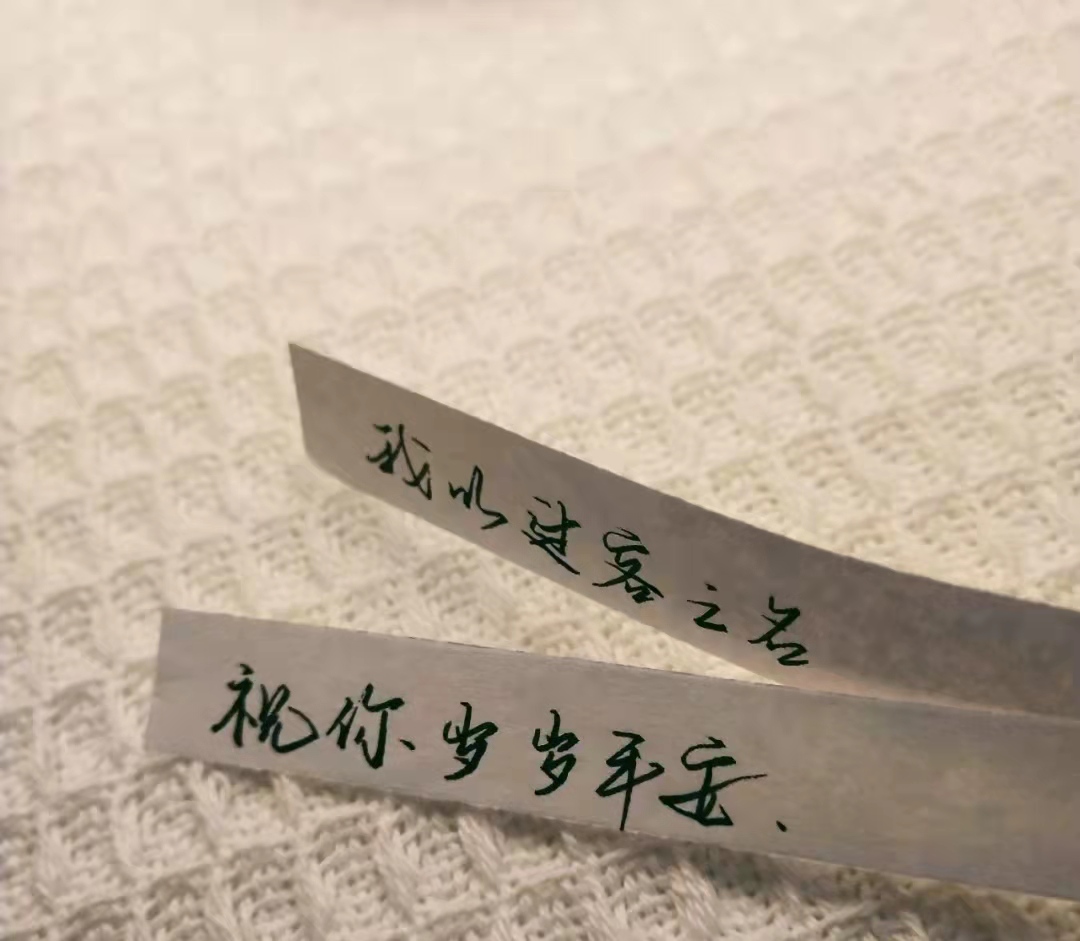 我以过客之名
祝你岁岁平安.